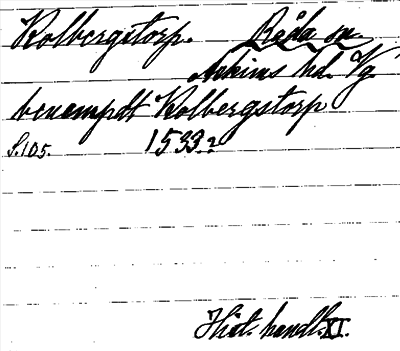 Kolbergstorp. Råda sn
Askims hd. Vg
benempdt Kolbergstorp
S. 105. 1533.2
Hist. handl. XI.